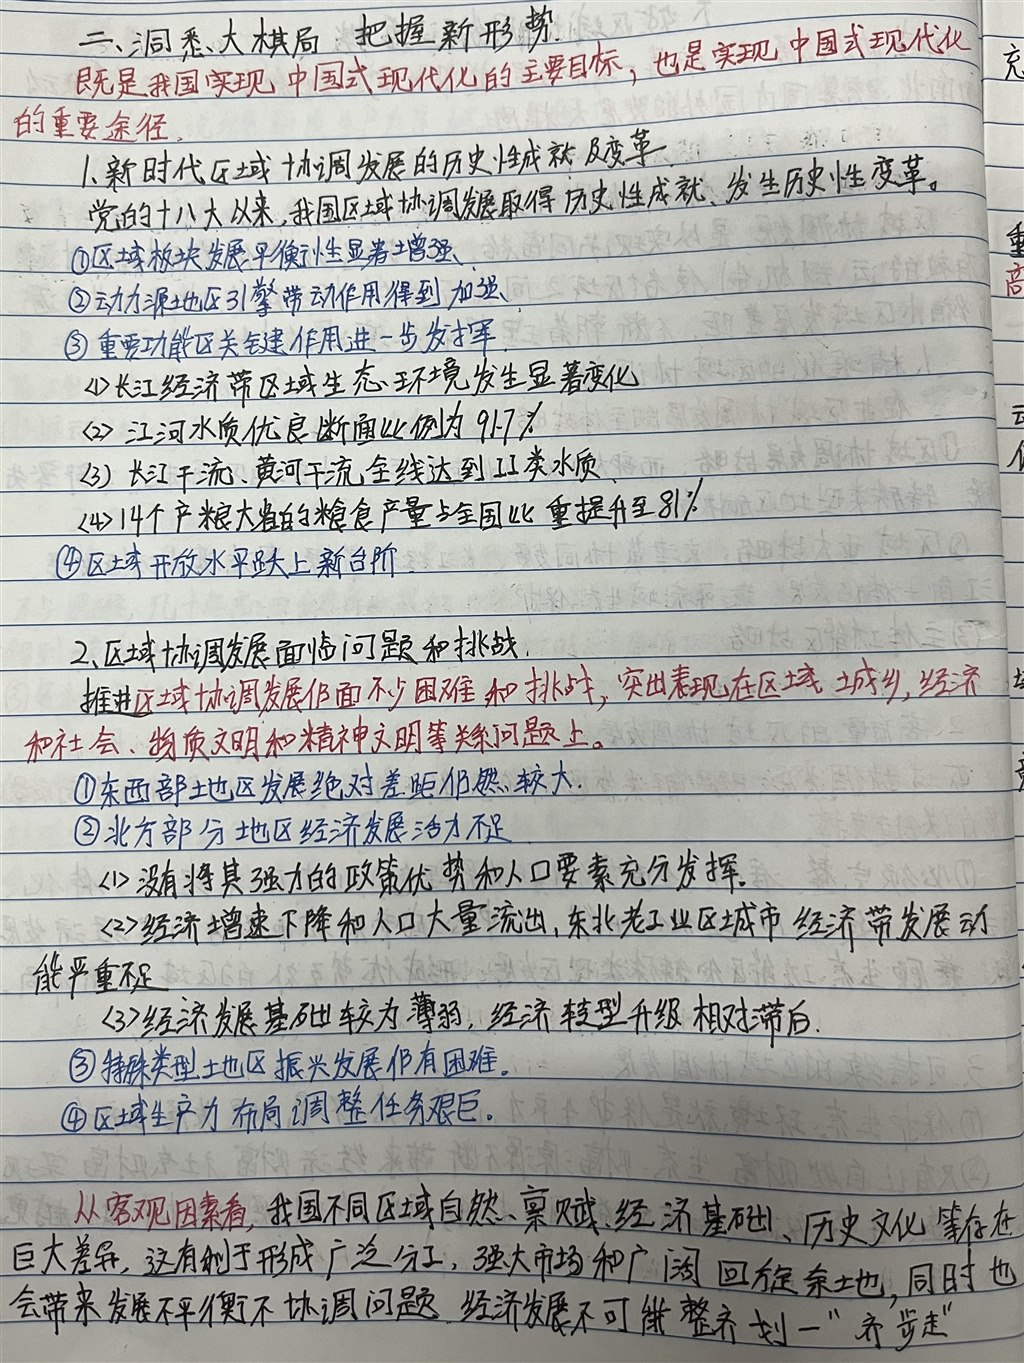 二、洞悉大棋局 把握新形势.
既是我国实现中国式现代化的主要目标，也是实现中国式现代化
的重要途径.
1、新时代区域协调发展的历史性成就及变革
党的十八大以来，我国区域协调发展取得历史性成就、发生历史性变革。
①区域板块发展平衡性显著增强、
②动力源地区引擎带动作用得到加强、
③重要功能区关键作用进一步发挥
<1>长江经济带区域生态环境发生显著变化
<2> 江河水质优良断面比例为91.7%
<3> 长江干流、黄河干流全线达到II类水质
<4>14个产粮大省的粮食产量占全国比重提升至81%
④区域开放水平跃上新台阶
2、区域协调发展面临问题和挑战.
推进区域协调发展仍面不少困难和挑战，突出表现在区域、城乡，经济
和社会、物质文明和精神文明等关系问题上。
①东西部地区发展绝对差距仍然较大.
②北方部分地区经济发展活力不足
<1>没有将其强力的政策优势和人口要素充分发挥.
<2>经济增速下降和人口大量流出，东北老工业区城市经济带发展动
能严重不足
<3>经济发展基础较为薄弱，经济转型升级相对滞后.
③特殊类型地区振兴发展仍有困难。
④区域生产力布局调整任务艰巨。
从客观因素看，我国不同区域自然、禀赋、经济基础、历史文化等存在
巨大差异，这有利于形成广泛分工，强大市场和广阔回旋余地，同时也
会带来发展不平衡不协调问题.经济发展不可能整齐划一"齐步走"
充
重
高